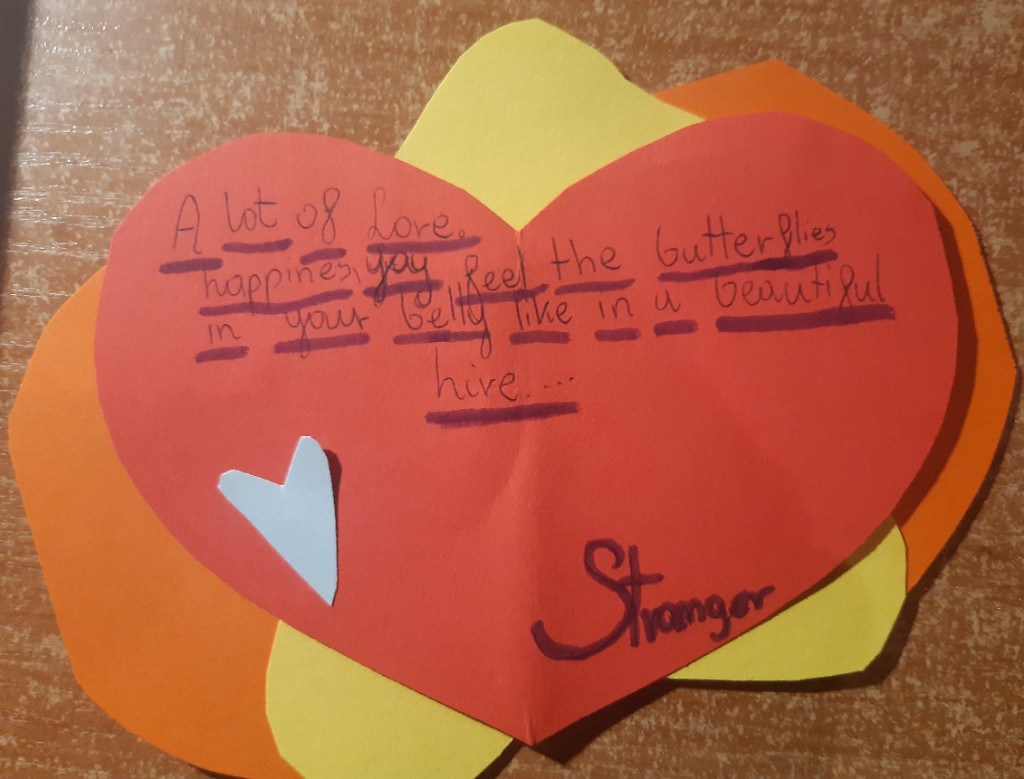 A lot of Love,
happines, yay feel the butterflies
in your belly like in a beautiful
hive....
Stranger